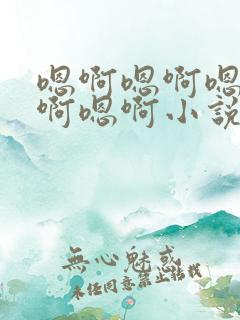 嗯啊嗯啊嗯
啊嗯啊小說
無心魅惑
未經同意禁止轉載